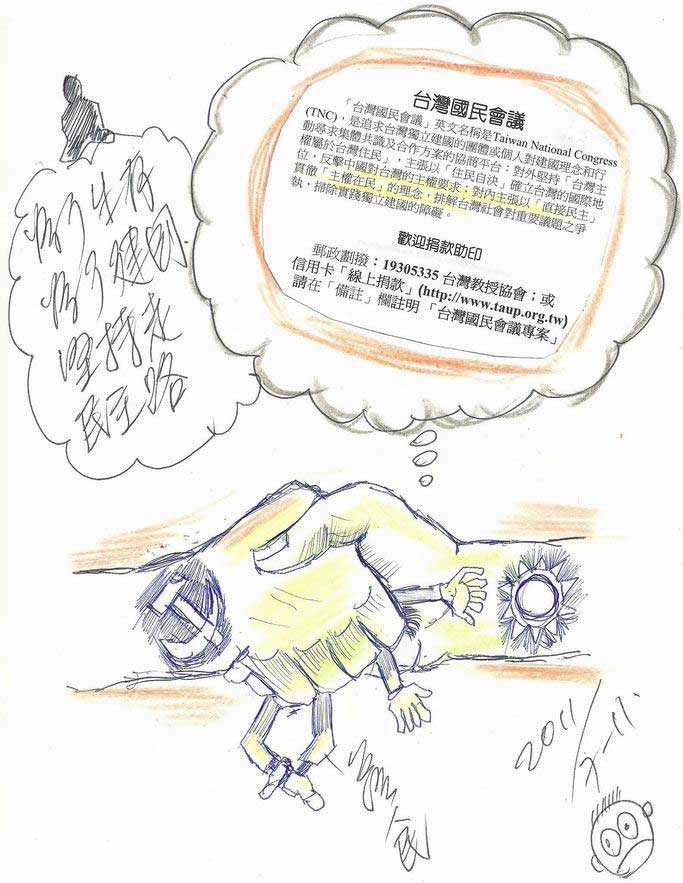 台灣國民會議
「台灣國民會議」英文名稱是Taiwan National Congress
(TNC)，是追求台灣獨立建國的團體或個人對建國理念和行
動尋求集體共識及合作方案的協商平台：對外堅持「台灣主
權屬於台灣住民」，主張以「住民自決」確立台灣的國際地
位，反擊中國對台灣的主權要求；對內主張以「直接民主」
貫徹「主權在民」的理念，排解台灣社會對重要議題之爭
執，掃除實踐獨立建國的障礙。
歡迎捐款助印
郵政劃撥：19305335 台灣教授協會；或
信用卡「線上捐款」(http://www.taup.org.tw)
請在「備註」欄註明 「台灣國民會議專案」
生存
建國
堅持走
民主路
民
2011